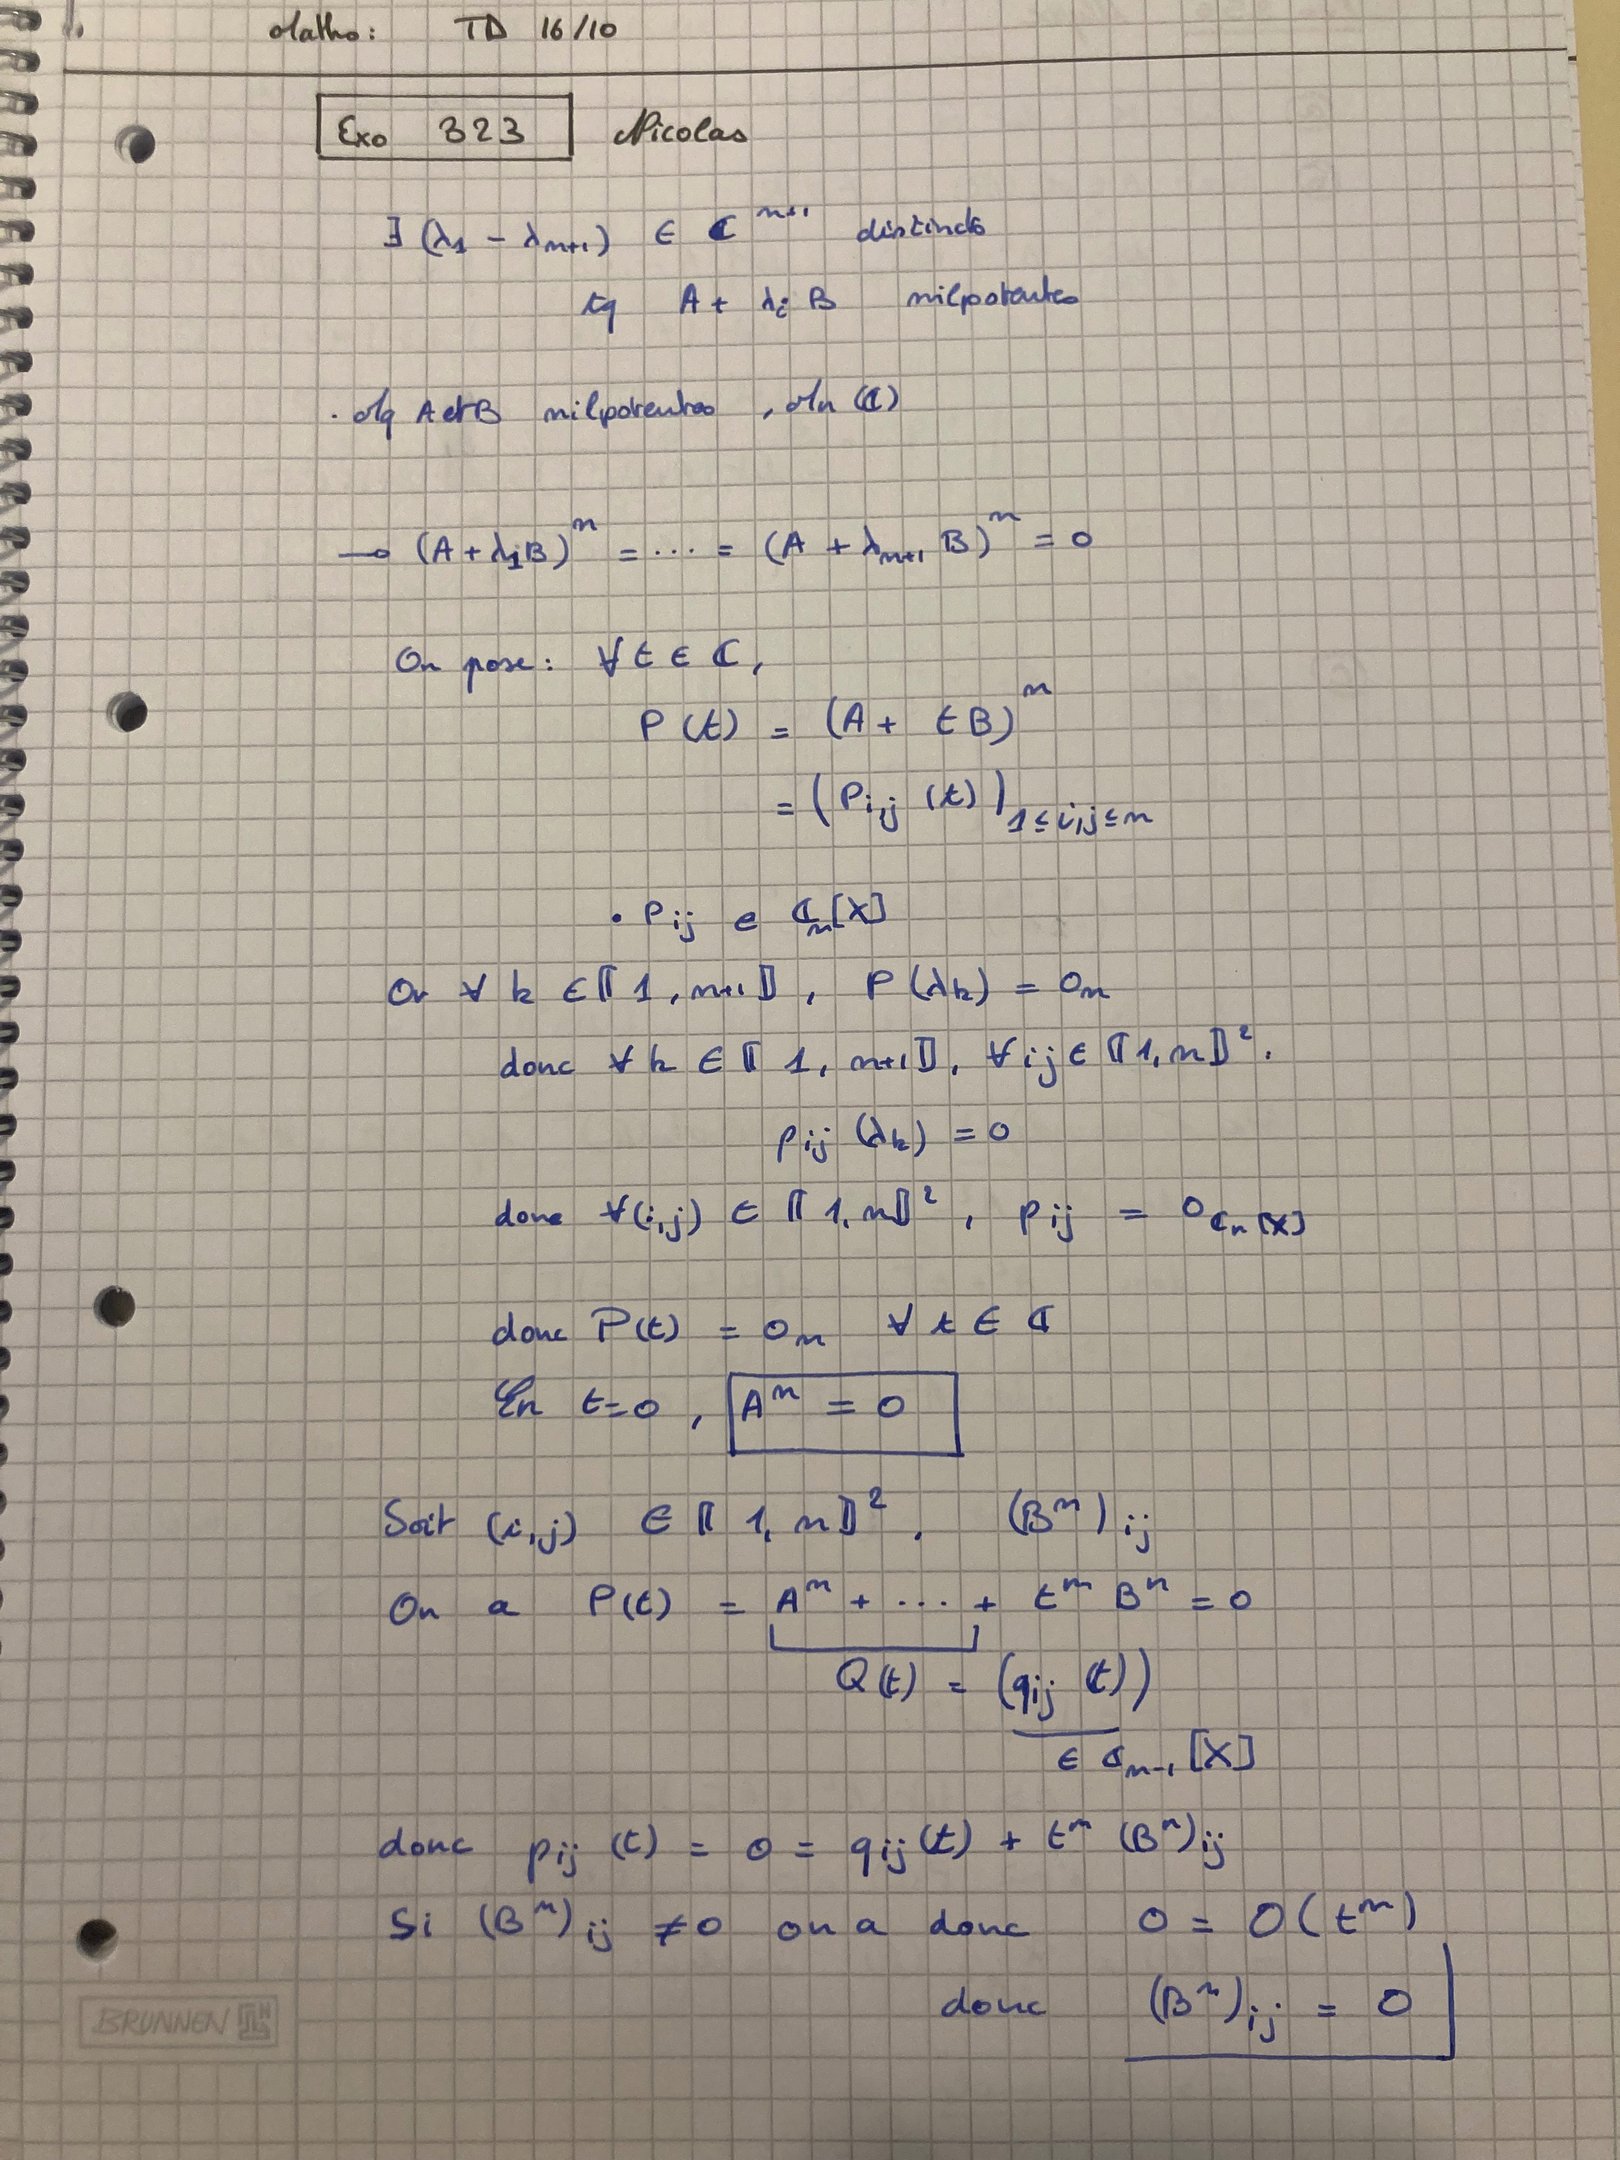 Maths: TD 16/10
Exo 323 Nicolas
∃ (λ1 - λn+1) ∈ ℂ^n+1 distincts
tq A + λi B nilpotentes
. Mq A et B nilpotentes, Mn(ℂ)
→ (A + λ1B)^n = ... = (A + λn+1 B)^n = 0
On pose: ∀ t ∈ ℂ,
P(t) = (A + tB)^n
= (Pi,j (t))1≤i,j≤n
• Pij ∈ ℂn[X]
Or ∀ k ∈ ⟦1, n+1⟧, P(λk) = 0n
donc ∀ k ∈ ⟦1, n+1⟧, ∀ ij ∈ ⟦1, n⟧².
Pij (λk) = 0
donc ∀(i,j) ∈ ⟦1, n⟧², Pij = 0ℂn[X]
donc P(t) = 0n ∀ t ∈ ℂ
En t=0, A^n = 0
Soit (i,j) ∈ ⟦1, n⟧², (B^n)ij
On a P(t) = A^n + ... + t^n B^n = 0
Q(t) = (qij (t))
∈ ℂn-1 [X]
donc pij (t) = 0 = qij(t) + t^n (B^n)ij
Si (B^n)ij ≠ 0 on a donc 0 = O(t^n)
donc (B^n)ij = 0
BRUNNEN